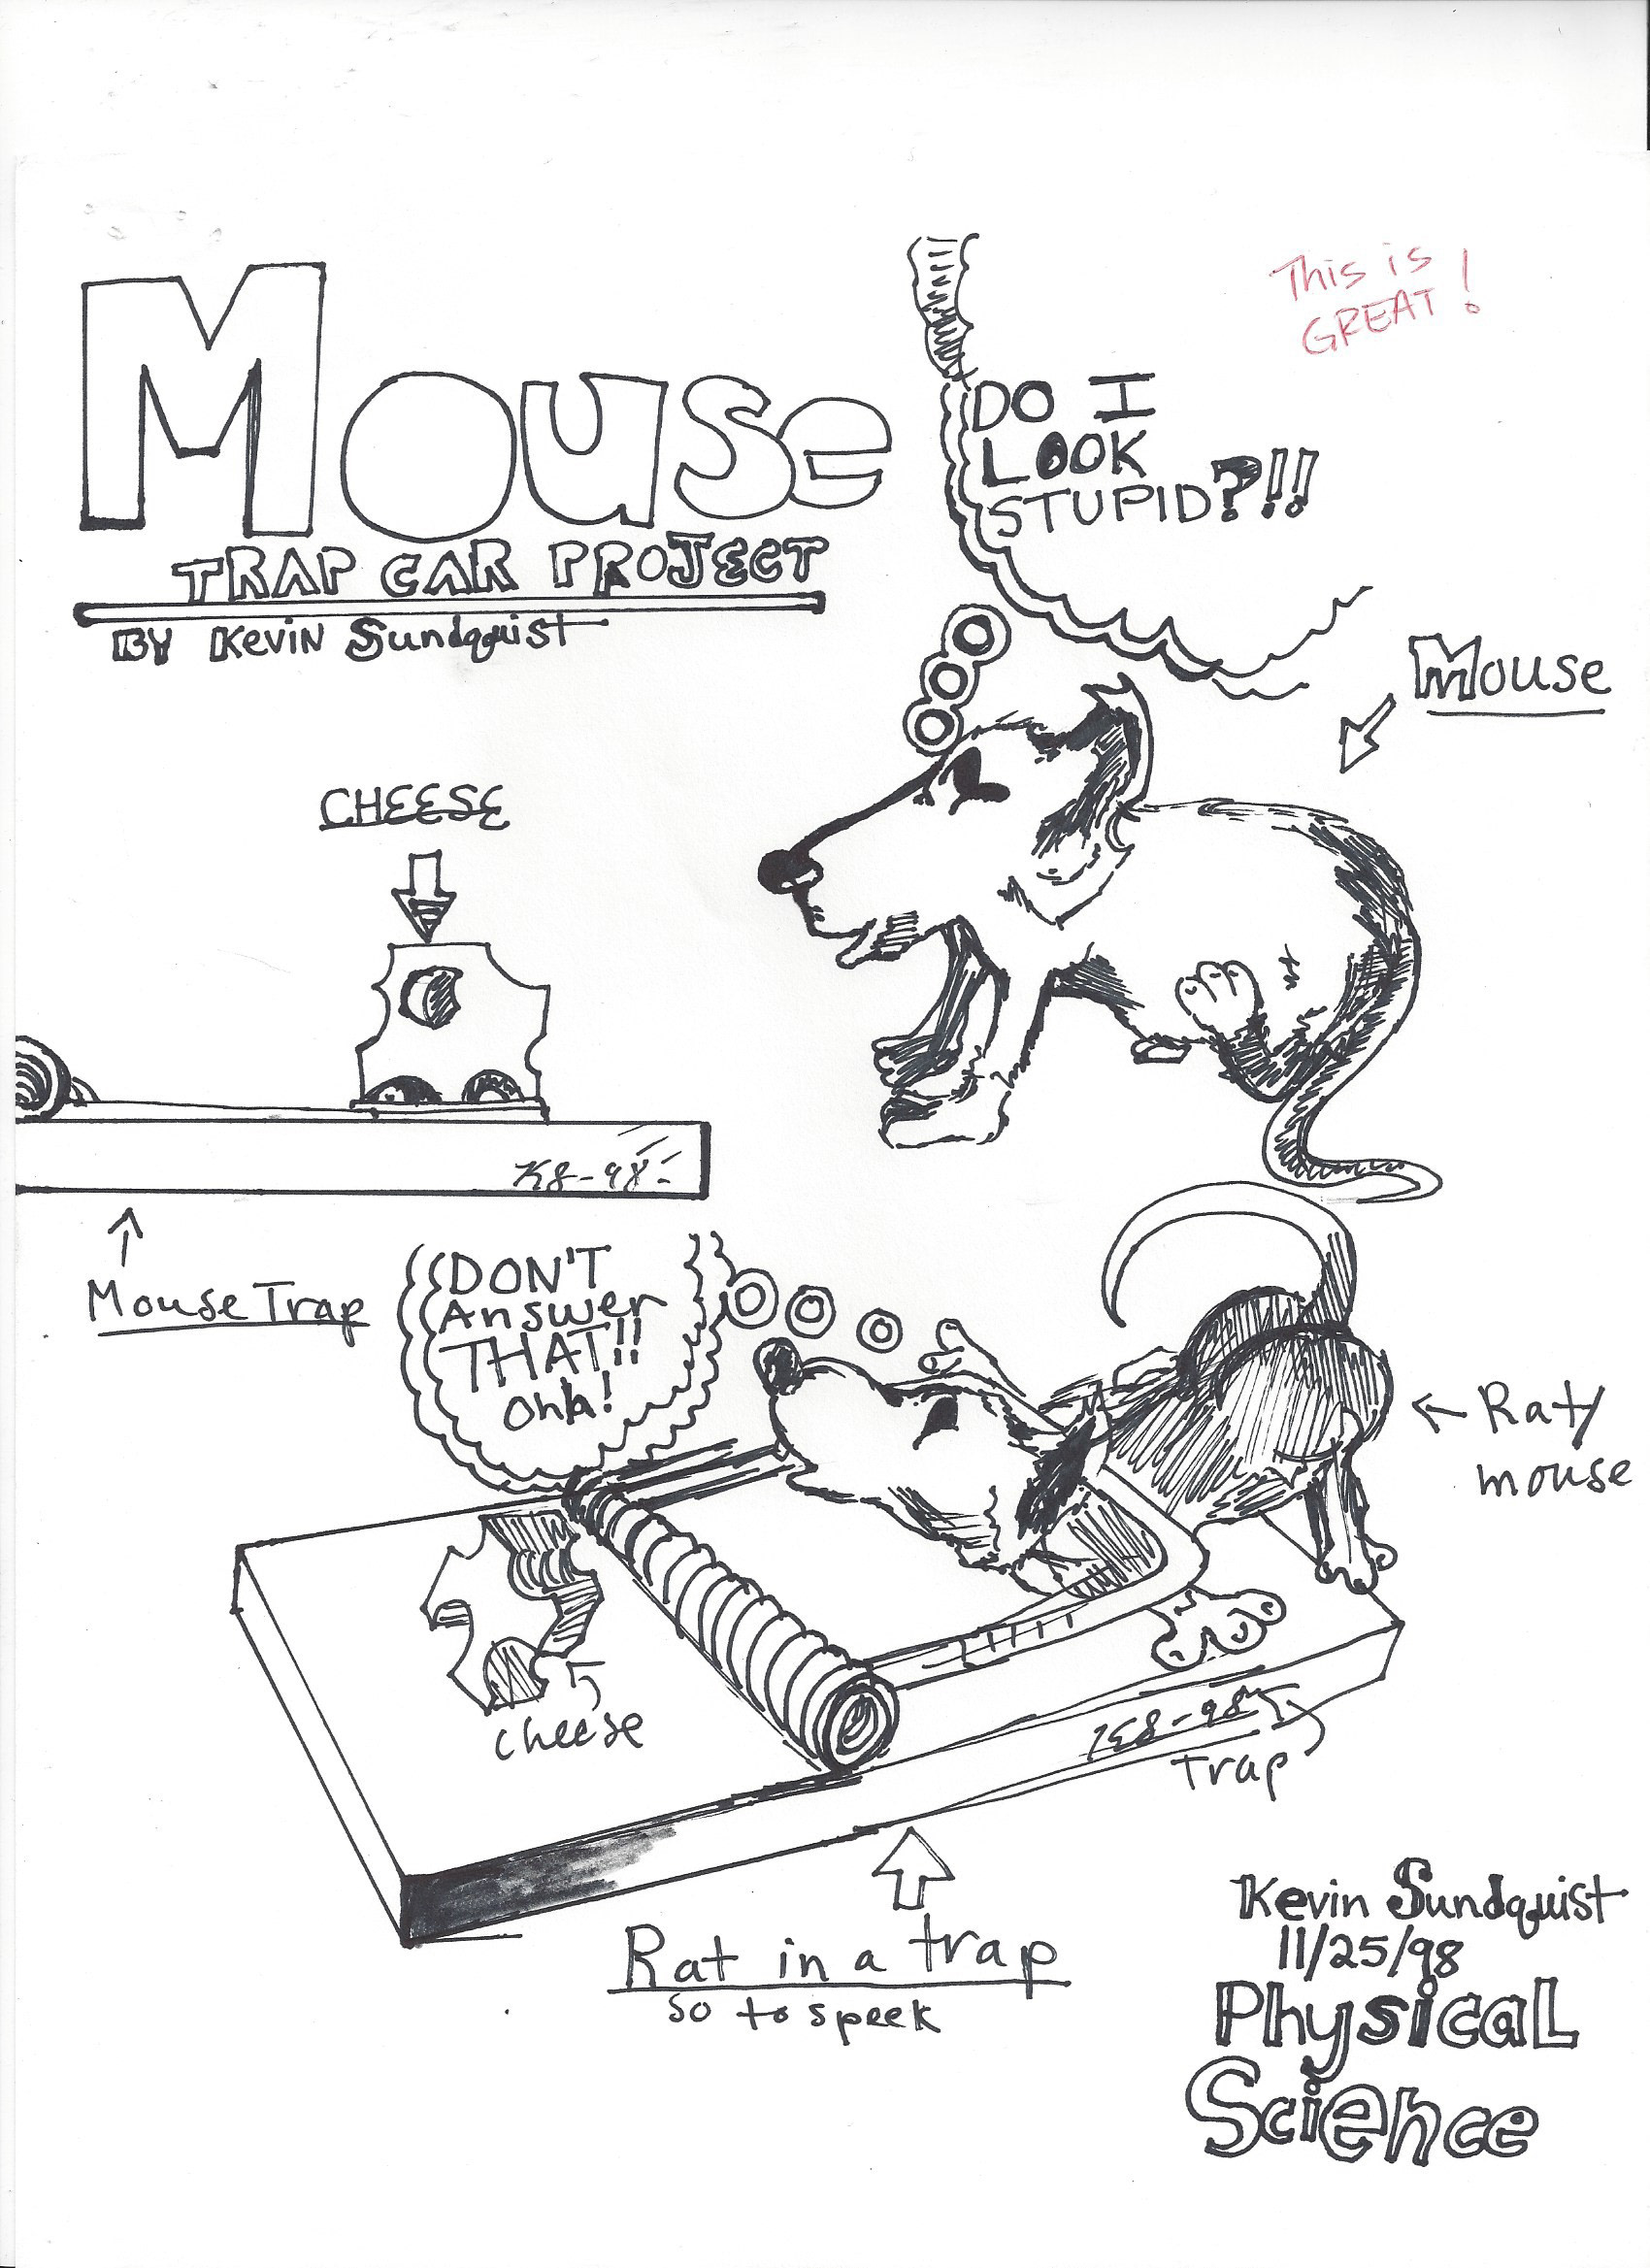 This is
GREAT!
Mouse
TRAP CAR PROJECT
BY Kevin Sundquist
DO I
LOOK
STUPID?!!
Mouse
CHEESE
KS-98-
Mouse Trap
DON'T
Answer
THAT!!
Ohh!
Rat/
mouse
cheese
KES-98
Trap
Rat in a trap
so to speek
Kevin Sundquist
11/25/98
Physical
Science